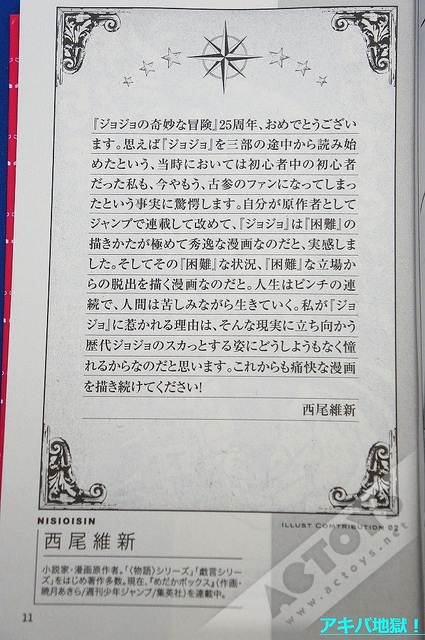 『ジョジョの奇妙な冒険』25周年、おめでとうござい
ます。思えば『ジョジョ』を三部の途中から読み始
めたという、当時においては初心者中の初心者
だった私も、今やもう、古参のファンになってしまっ
たという事実に驚愕します。自分が原作者として
ジャンプで連載して改めて、『ジョジョ』は『困難』の
描きかたが極めて秀逸な漫画なのだと、実感しま
した。そしてその『困難』な状況、『困難』な立場か
らの脱出を描く漫画なのだと。人生はピンチの連
続で、人間は苦しみながら生きていく。私が『ジョ
ジョ』に惹かれる理由は、そんな現実に立ち向かう
歴代ジョジョのスカッとする姿にどうしようもなく憧
れるからなのだと思います。これからも痛快な漫画
を描き続けてください!
西尾維新
NISIOISIN
ILLUST CONTRIBUTION 02
西尾維新
小説家・漫画原作者。「〈物語〉シリーズ」「戯言シリー
ズ」をはじめ著作多数。現在、『めだかボックス』(作画・
暁月あきら/週刊少年ジャンプ/集英社)を連載中。
11
ACTOYS
www.actoys.net
アキバ地獄!